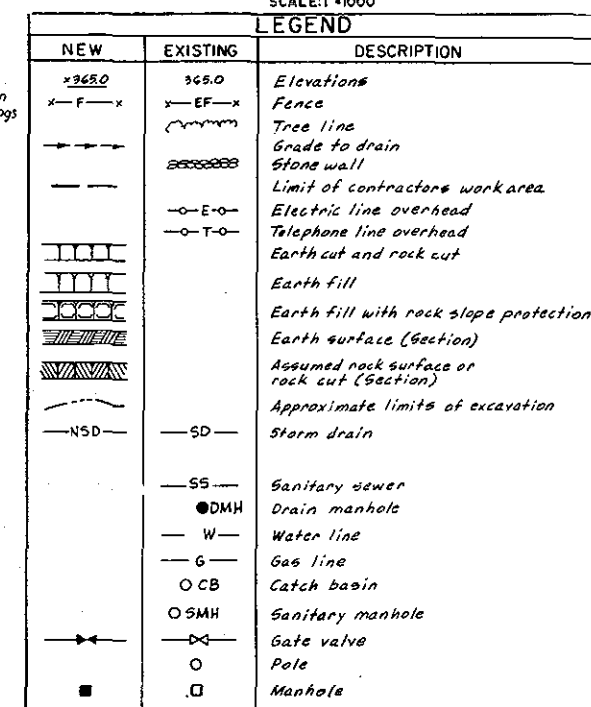 SCALE:1"=1000'
LEGEND
NEW EXISTING DESCRIPTION
×365.0 365.0 Elevations
x—F—x x—EF—x Fence
Tree line
Grade to drain
Stone wall
Limit of contractors work area
E Electric line overhead
T Telephone line overhead
Earth cut and rock cut
Earth fill
Earth fill with rock slope protection
Earth surface (Section)
Assumed rock surface or
rock cut (Section)
Approximate limits of excavation
NSD SD Storm drain
SS Sanitary sewer
DMH Drain manhole
W Water line
G Gas line
CB Catch basin
SMH Sanitary manhole
Gate valve
Pole
Manhole